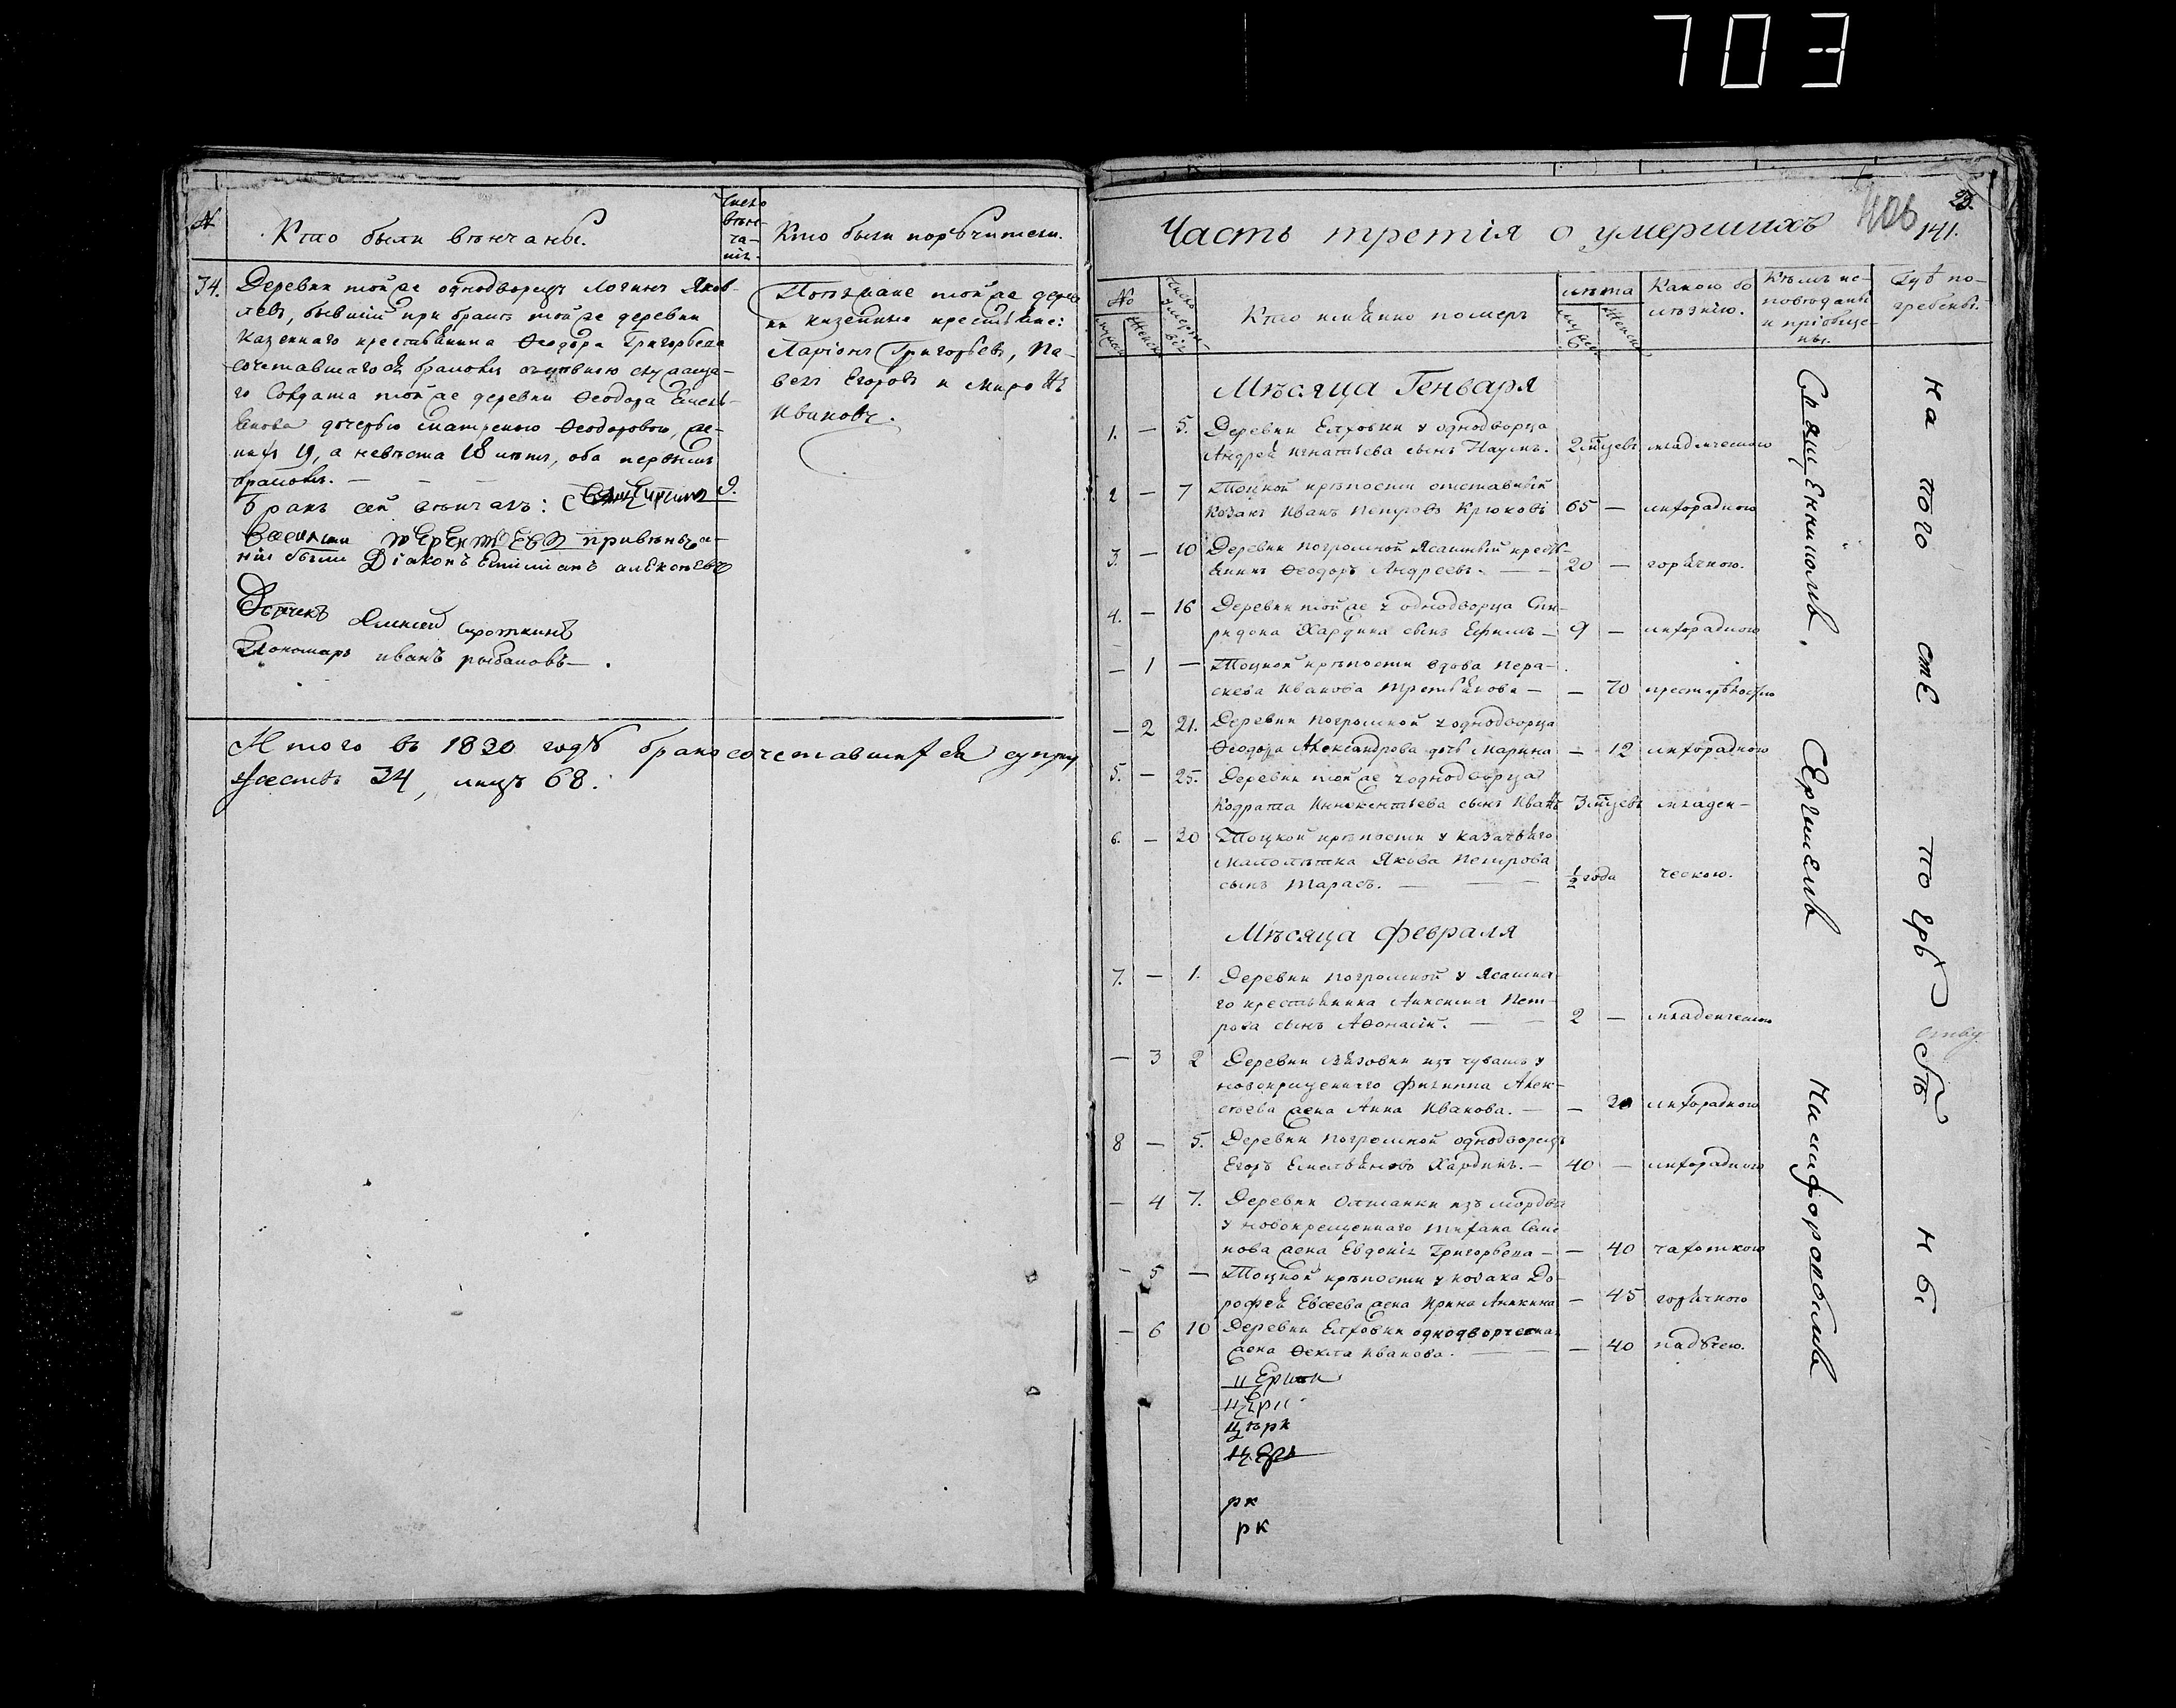 703
№
Кто были вѣнчаны.
Число вѣнчанія.
Кто были порѣчители.
34.
Деревни той же однодворецъ Логинъ Яков-
левъ, бывшій при бракѣ той же деревни
казеннаго крестьянина Ѳеодора Григорьева
сочетавшагося бракомъ
го Солдата той же деревни Ѳеодора Емель-
янова дочерью Матреною Ѳеодоровою, же-
нихъ 19, а невѣста 18 лѣтъ, оба первымъ
бракомъ.
Бракъ сей вѣнчалъ:
Василий терентьевъ привѣнча-
ніи были Діаконъ Емилианъ алексѣевъ
Дьячекъ Алексей сироткинъ
Пономарь иванъ рыбаковъ
Поѣзжане той же дерев
ни казенные крестьяне:
Ларіонъ Григорьевъ, Па-
велъ Егоровъ и Миронъ
Ивановъ.
Итого въ 1830 годѣ бракосочетавшихся супру
жествъ 34, лицъ 68.
406
23.
141.
Часть третія о умершихъ
№
Мужеск
Женск
Число умертвія
Кто имянно померъ
лѣта
мужеск
Женск
Какою бо
лѣзнію.
Кѣмъ ис-
повѣданы
и пріобще-
ны.
Гдѣ по-
гребены.
Мѣсяца Генваря
1. — 5. Деревни Елховки у однодворца
Андрея Игнатьева сынъ Наумъ. 2 мцевъ младенческою
2 — 7 Тоцкой крѣпости отставный
козакъ Иванъ Петровъ Крюковъ 65 — лихорадкою
3. — 10 Деревни Погромной Ясашный кресть-
янинъ Ѳеодоръ Андреевъ. 20 — горячкою.
4. — 16 Деревни той же у однодворца Спи-
ридона Хардина сынъ Ефимъ — 9 — лихорадкою
— 1 — Тоцкой крѣпости вдова Пера-
скева Иванова Третьякова — — 70 престарѣлостію
— 2 21. Деревни Погромной у однодворца
Ѳеодора Александрова дочь Марина — 12 лихорадкою
5. — 25. Деревни той же у однодворца
Кодрата Иннокентьева сынъ Иванъ 3 мцевъ младен-
6. — 30 Тоцкой крѣпости у казачьяго
малолѣтка Якова Петрова
сынъ Тарасъ. — ½ года ческою.
Мѣсяца Февраля
7. — 1. Деревни Погромной у Ясашна-
го крестьянина Анисима Пет-
рова сынъ Аѳонасій. 2 — младенческою
— 3 2 Деревни изъ чувашъ у
новокрещеннаго Филиппа Алек-
сѣева жена Анна Иванова. — — лихорадкою
8 — 5. Деревни Погромной однодворецъ
Егоръ Емельяновъ Хардинъ. — 40 — лихорадкою
— 4 7. Деревни изъ мордвы
у новокрещеннаго Тихана Семе
нова жена Евдокія Григорьева — — 40 чахоткою
— 5 — Тоцкой крѣпости у козака До-
рофея Евсеева жена Ирина Аникина — 45 горячкою
— 6 10 Деревни Елховки однодворческа
жена Ѳекла Иванова. — 40 падучею.
церк
цѣрк
рк
рк
Священникомъ. Сергиемъ Никифоровымъ
на погосте погребены